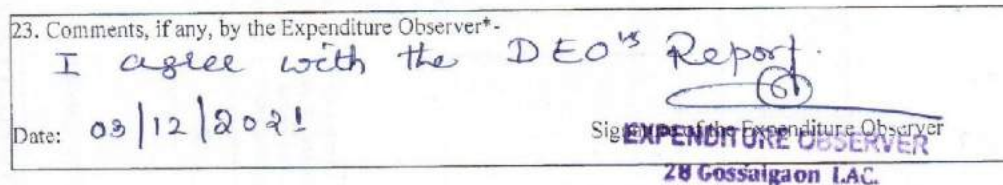 23. Comments, if any, by the Expenditure Observer*-
I agree with the DEO's Report.
Date: 03/12/2021
Signature of the Expenditure Observer
EXPENDITURE OBSERVER
28 Gossaigaon LAC.